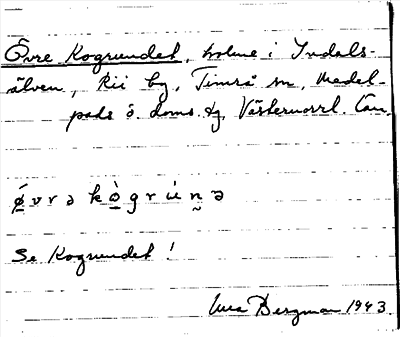 Övre Kogrundet, holme i Indals-
älven, Rii by, Timrå sn, Medel-
pads ö. doms.tg, Västernorrl. län.
ǿvrə kògrúṇə
Se Kogrundet!
Bergman 1943.